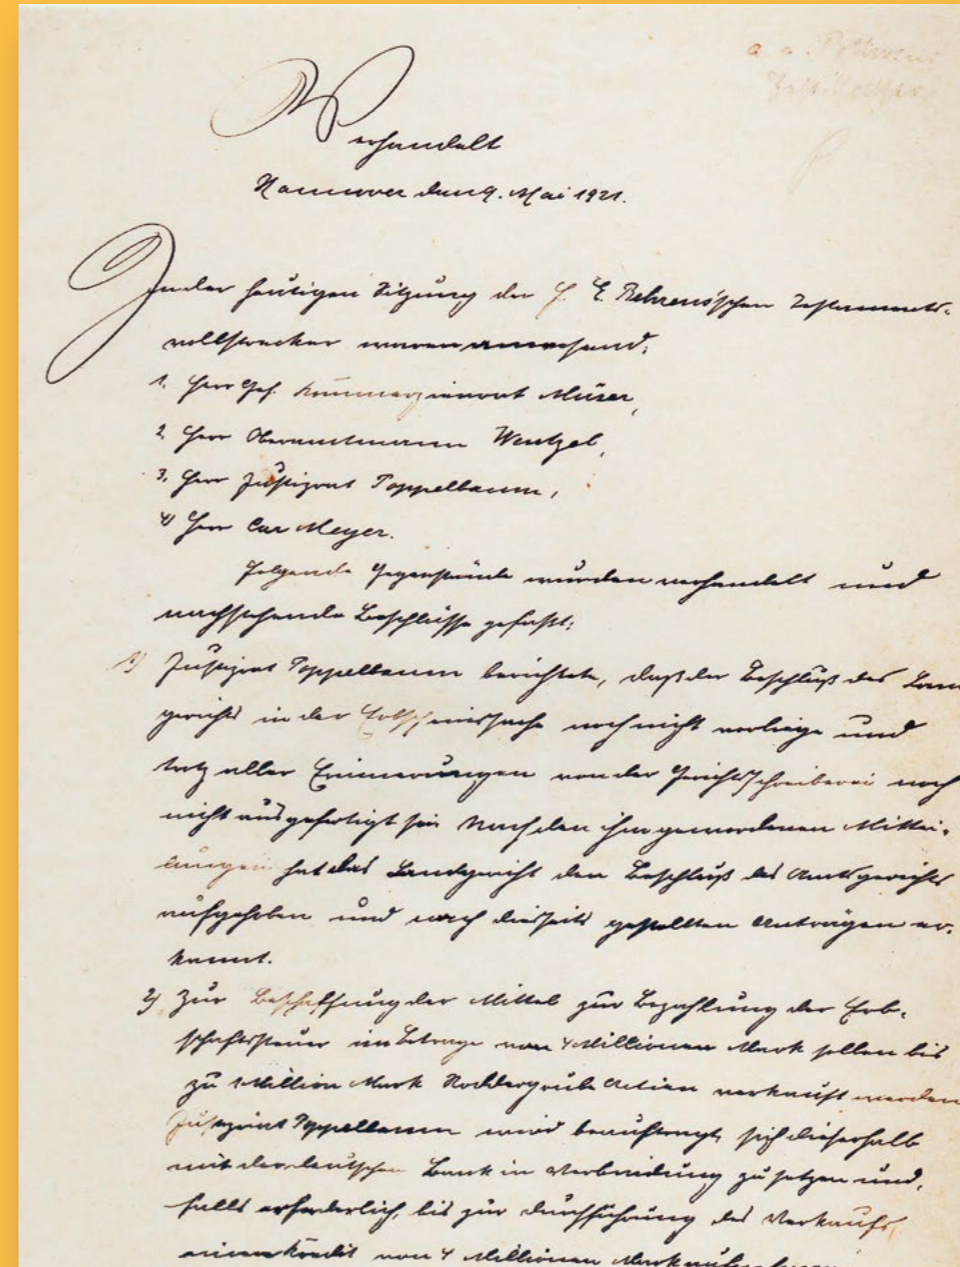 Verhandelt
Hannover den 9. Mai 1921.
In der heutigen Sitzung der F. E. Behrens'schen Testaments-
vollstrecker waren anwesend:
1. Herr Geh. Kommerzienrat Müser,
2. Herr Oberamtmann Wentzel,
3. Herr Justizrat Poppelbaum,
4) Herr Carl Meyer.
Folgende Gegenstände wurden verhandelt und
nachstehende Beschlüsse gefaßt:
1) Justizrat Poppelbaum berichtete, daß der Beschluß des Lan
gerichts in der Erbscheinssache noch nicht vorliege und
trotz aller Erinnerungen von der Gerichtsschreiberei noch
nicht ausgefertigt sei. Nach den ihm gewordenen Mittei-
lungen hat das Landgericht den Beschluß des Amtsgerichts
aufgehoben und nach diesseits gestellten Anträgen er-
kannt.
2) Zur Beschaffung der Mittel zur Bezahlung der Erb-
schaftssteuer im Betrage von 4 Millionen Mark sollen bis
zu 1 Million Mark Roddergrube Actien verkauft werden
Justizrat Poppelbaum wird beauftragt, sich dieserhalb
mit der deutschen Bank in Verbindung zu setzen und,
falls erforderlich, bis zur Durchführung des Verkaufs,
einen Kredit von 4 Millionen Mark